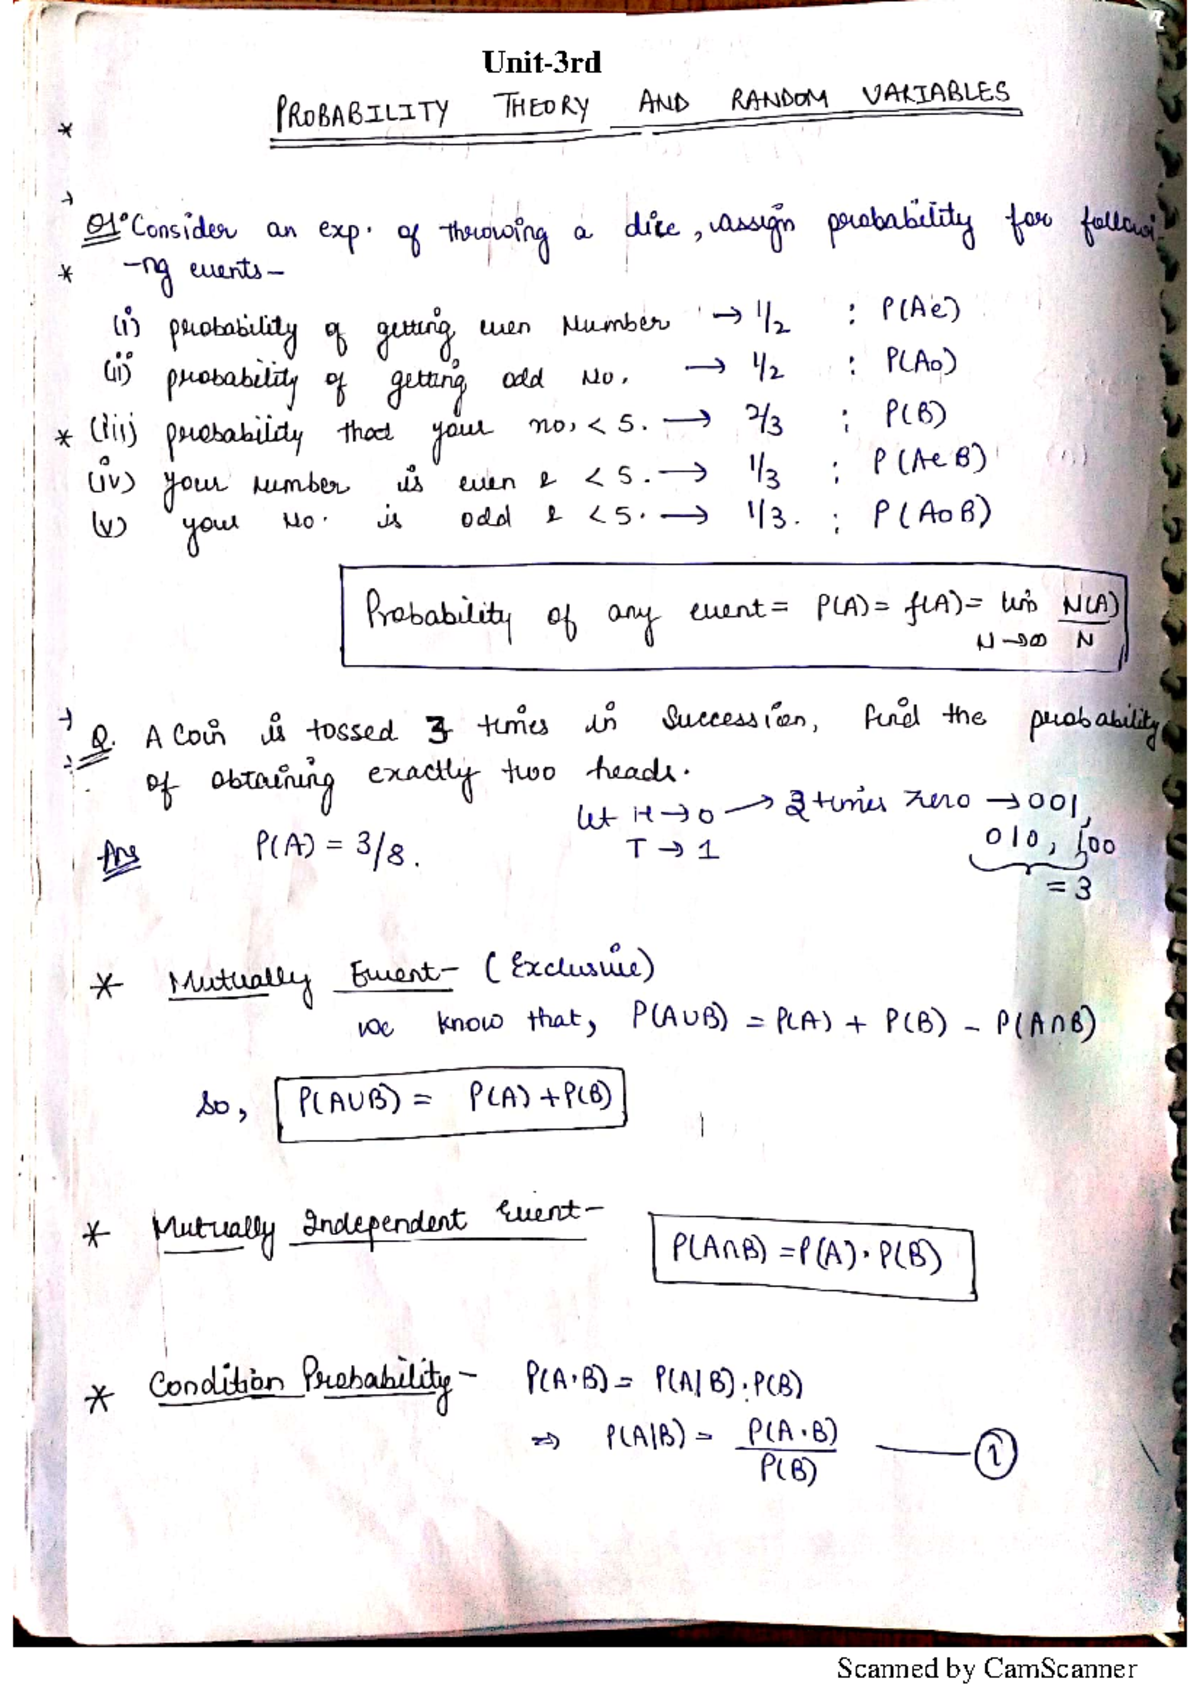 Unit-3rd
* PROBABILITY THEORY AND RANDOM VARIABLES
Q1° Consider an exp. of throwing a dice, assign probability for followi-
* -ng events-
(i) probability of getting even Number → 1/2 : P(Ae)
(ii) probability of getting odd No. → 1/2 : P(Ao)
* (iii) probability that your no. < 5. → 2/3 : P(B)
(iv) your number is even & < 5. → 1/3 : P(AeB)
(v) your No. is odd & < 5. → 1/3. : P(AoB)
Probability of any event = P(A) = f(A) = lim N→∞ N(A)/N
Q. A Coin is tossed 3 times in Succession, find the probability
of obtaining exactly two heads.
let H→0 → 2 times zero → 001,
Ans P(A) = 3/8. T→1 010, 100
= 3
* Mutually Event- (Exclusive)
we know that, P(A∪B) = P(A) + P(B) - P(A∩B)
So, P(A∪B) = P(A) + P(B)
* Mutually Independent Event-
P(A∩B) = P(A). P(B)
* Condition Probability- P(A.B) = P(A|B).P(B)
⇒ P(A|B) = P(A.B)/P(B) — 1
Scanned by CamScanner